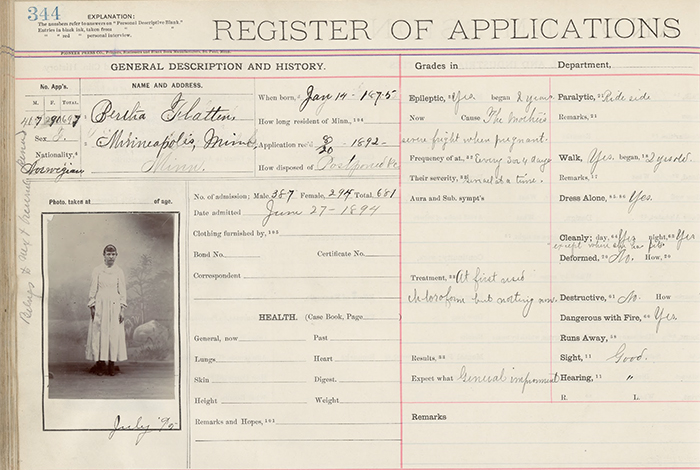 344
EXPLANATION:
The numbers refer to answers on "Personal Descriptive Blank."
Entries in black ink, taken from " " "
" " red " personal interview.
REGISTER OF APPLICATIONS
GENERAL DESCRIPTION AND HISTORY.
Grades in
Department,
No. App's.
M. F. TOTAL.
417 290 697
Sex F.
Nationality,
Norwegian
NAME AND ADDRESS.
Bertha Flatten,
Minneapolis, Minn.
Minn.
When born, Jan 14 - 1875
How long resident of Minn.,
Application rec'd 8/20 - 1892 -
How disposed of Postponed
Photo. taken at of age.
July '95
No. of admission; Male, 387 Female, 294 Total, 681
Date admitted June 27 - 1894
Clothing furnished by,
Bond No. Certificate No.
Correspondent
HEALTH. (Case Book, Page
General, now Past
Lungs Heart
Skin Digest.
Height Weight
Remarks and Hopes,
Epileptic, Yes began 2 years
Now Cause The mother's
severe fright when pregnant.
Frequency of at., Every 3 or 4 days
Their severity, Several at a time.
Aura and Sub. sympt's
Treatment, At first used
chloroform but nothing now.
Results,
Expect what General improvment
Paralytic, Ride side
Remarks,
Walk, Yes. began, 2 yrs old.
Remarks,
Dress Alone, Yes.
Cleanly; day, Yes night, Yes
except when she has fits
Deformed, No. How,
Destructive, No. How
Dangerous with Fire, Yes.
Runs Away,
Sight, Good.
Hearing, "
R. L.
Remarks